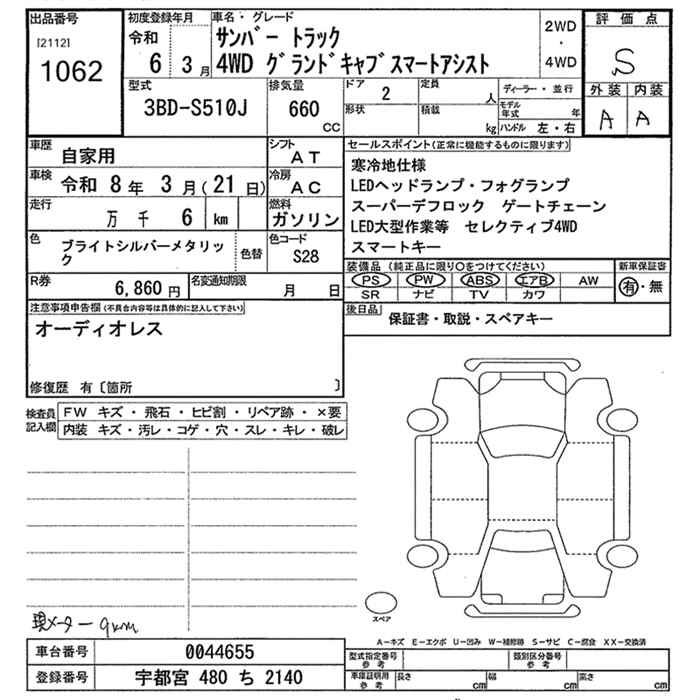 出品番号
[2112]
1062
初度登録年月
令和
6 3月
車名・グレード
サンバー トラック
4WD グランドキャブスマートアシスト
2WD
・
4WD
評価点
S
外装 内装
A A
型式
3BD-S510J
排気量
660
CC
ドア
2
形状
定員
人
積載
kg
ディーラー・並行
モデル年式 年
ハンドル 左・右
車歴
自家用
シフト
AT
車検
令和 8年 3月(21日)
冷房
AC
走行
万 千 6 km
燃料
ガソリン
色
ブライトシルバーメタリック
色替
色コード
S28
R券
6,860円
名変通知期限
月 日
セールスポイント(正常に機能するものに限ります)
寒冷地仕様
LEDヘッドランプ・フォグランプ
スーパーデフロック ゲートチェーン
LED大型作業等 セレクティブ4WD
スマートキー
装備品 (純正品に限り○をつけてください)
PS PW ABS エアB AW
SR ナビ TV カワ
新車保証書
有・無
後日品
保証書・取説・スペアキー
注意事項申告欄(不具合内容等は具体的に記入して下さい)
オーディオレス
修復歴 有〔箇所 〕
検査員記入欄
FW キズ・飛石・ヒビ割・リペア跡・×要
内装 キズ・汚レ・コゲ・穴・スレ・キレ・破レ
現メーター 9km
スペア
A－キズ E－エクボ U－凹み W－補修跡 S－サビ C－腐食 XX－交換済
車台番号
0044655
登録番号
宇都宮 480 ち 2140
型式指定番号
参考
類別区分番号
参考
車庫証明用
参考
長さ cm
幅 cm
高さ cm